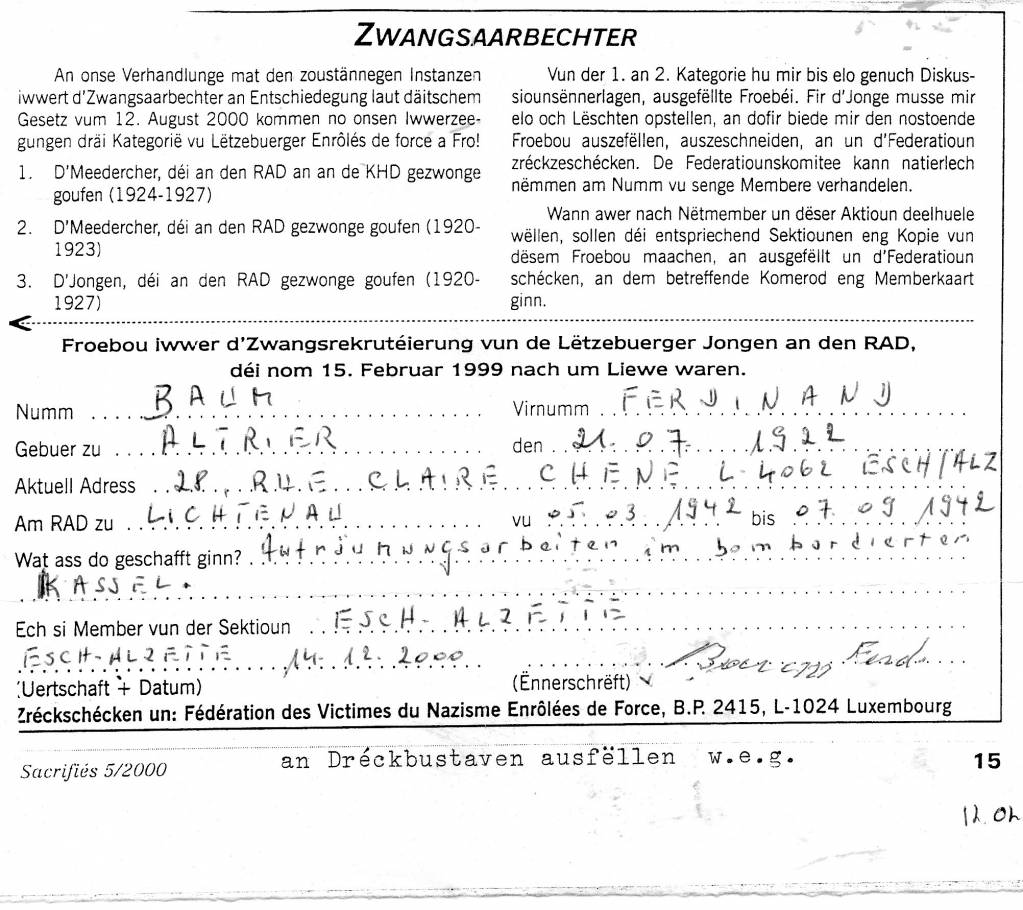 ZWANGSAARBECHTER
An onse Verhandlunge mat den zoustännegen Instanzen
iwwert d'Zwangsaarbechter an Entschiedegung laut däitschem
Gesetz vum 12. August 2000 kommen no onsen Iwwerzee-
gungen dräi Kategorië vu Lëtzebuerger Enrôlés de force a Fro!
1. D'Meedercher, déi an den RAD an an de KHD gezwonge
goufen (1924-1927)
2. D'Meedercher, déi an den RAD gezwonge goufen (1920-
1923)
3. D'Jongen, déi an den RAD gezwonge goufen (1920-
1927)
Vun der 1. an 2. Kategorie hu mir bis elo genuch Diskus-
siounsënnerlagen, ausgefëllte Froebéi. Fir d'Jonge musse mir
elo och Lëschten opstellen, an dofir biede mir den nostoende
Froebou auszefëllen, auszeschneiden, an un d'Federatioun
zréckzeschécken. De Federatiounskomitee kann natierlech
nëmmen am Numm vu senge Membere verhandelen.
Wann awer nach Nëtmember un dëser Aktioun deelhuele
wëllen, sollen déi entspriechend Sektiounen eng Kopie vun
dësem Froebou maachen, an ausgefëllt un d'Federatioun
schécken, an dem betreffende Komerod eng Memberkaart
ginn.
Froebou iwwer d'Zwangsrekrutéierung vun de Lëtzebuerger Jongen an den RAD,
déi nom 15. Februar 1999 nach um Liewe waren.
Numm BAUM Virnumm FERDINAND
Gebuer zu ALTRIER den 21.07. 1922
Aktuell Adress 28, RUE CLAIRE CHENE L-4062 ESCH/ALZ
Am RAD zu LICHTENAU vu 05.03.1942 bis 07.09.1942
Wat ass do geschafft ginn? Aufräumungsarbeiten im bombardierten
KASSEL.
Ech si Member vun der Sektioun ESCH-ALZETTE
ESCH-ALZETTE 14.12.2000 Baum Ferd
(Uertschaft + Datum) (Ënnerschrëft)
Zréckschécken un: Fédération des Victimes du Nazisme Enrôlées de Force, B.P. 2415, L-1024 Luxembourg
Sacrifiés 5/2000 an Dréckbustaven ausfëllen w.e.g. 15